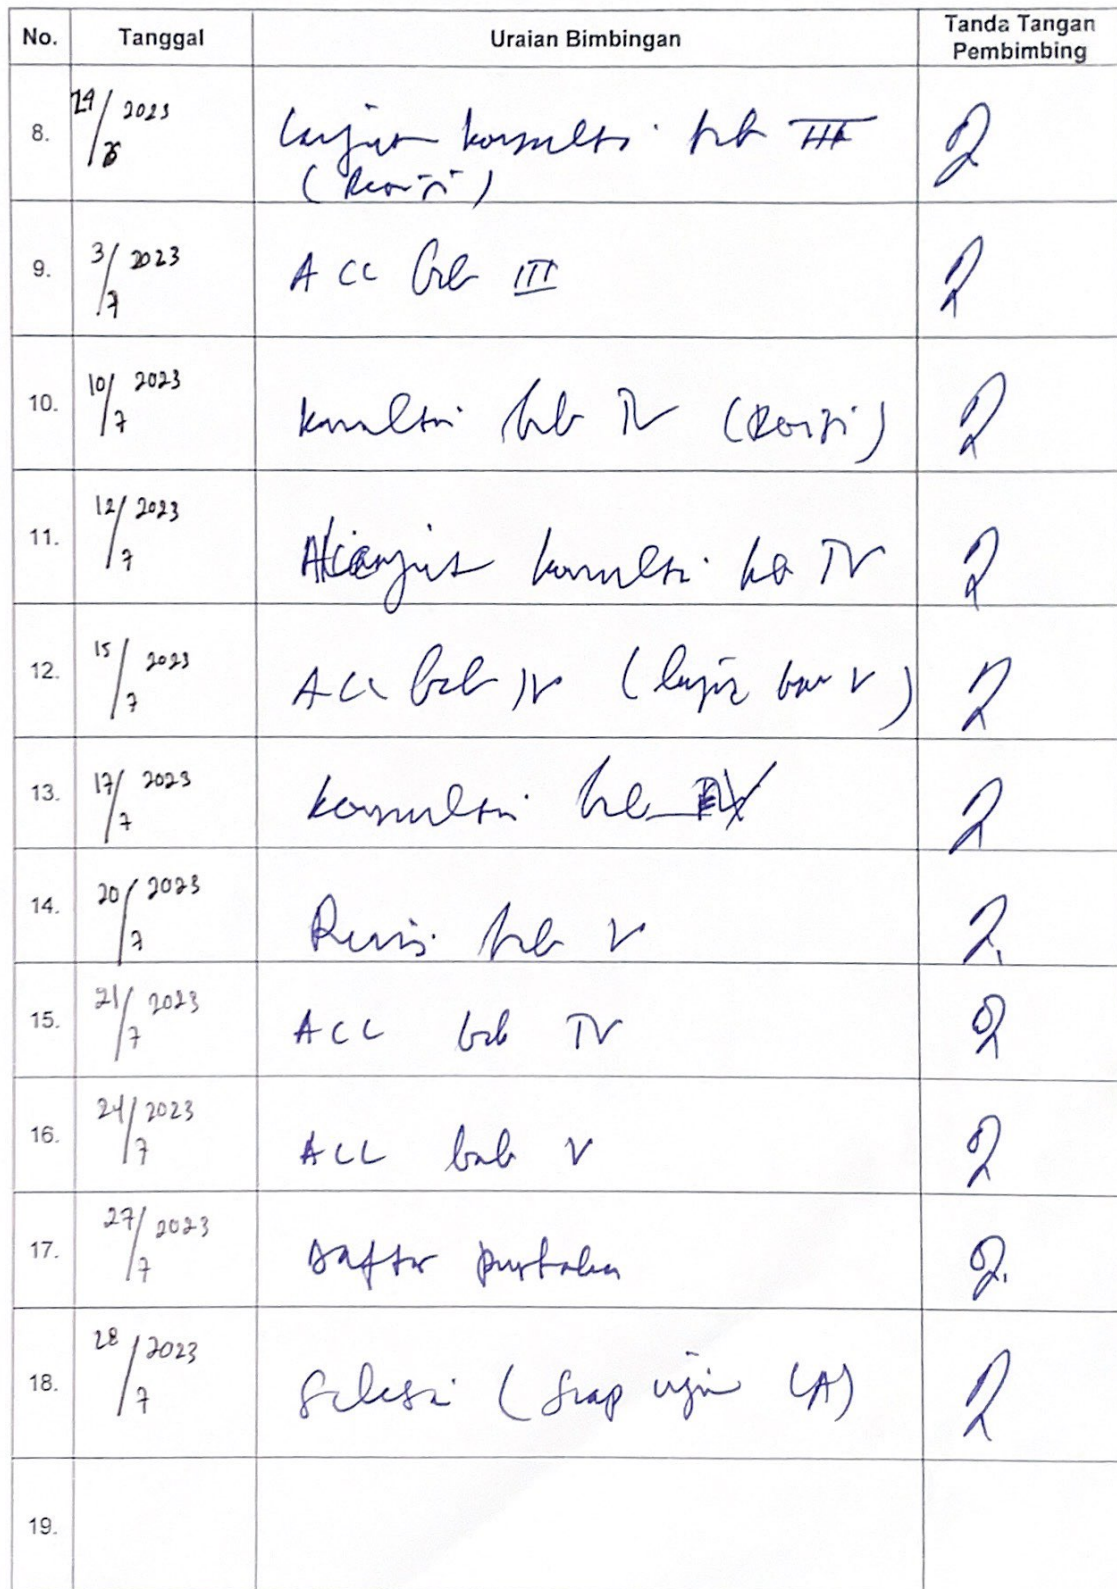 No. Tanggal Uraian Bimbingan Tanda Tangan
Pembimbing
8. 2023 Lanjut konsultasi bab III
(Revisi)
9. 3/7 2023 ACC bab III
10. 10/7 2023 konsultasi bab IV (Revisi)
11. 12/7 2023 Lanjut konsultasi bab IV
12. 15/7 2023 ACC bab IV (lanjut bab V)
13. 17/7 2023 konsultasi bab
14. 20/7 2023 Revisi bab V
15. 21/7 2023 ACC bab IV
16. 24/7 2023 ACC bab V
17. 27/7 2023 Daftar pustaka
18. 28/7 2023 Selesai (Siap ujian LA)
19.